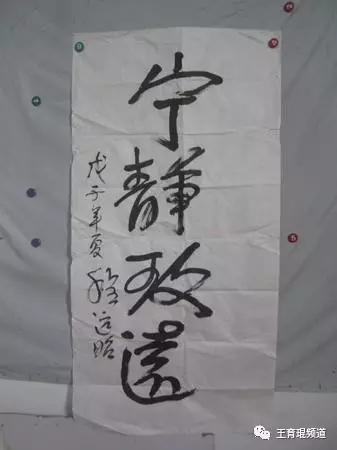 宁静致远
戊子年夏 程远昭
王育琨频道